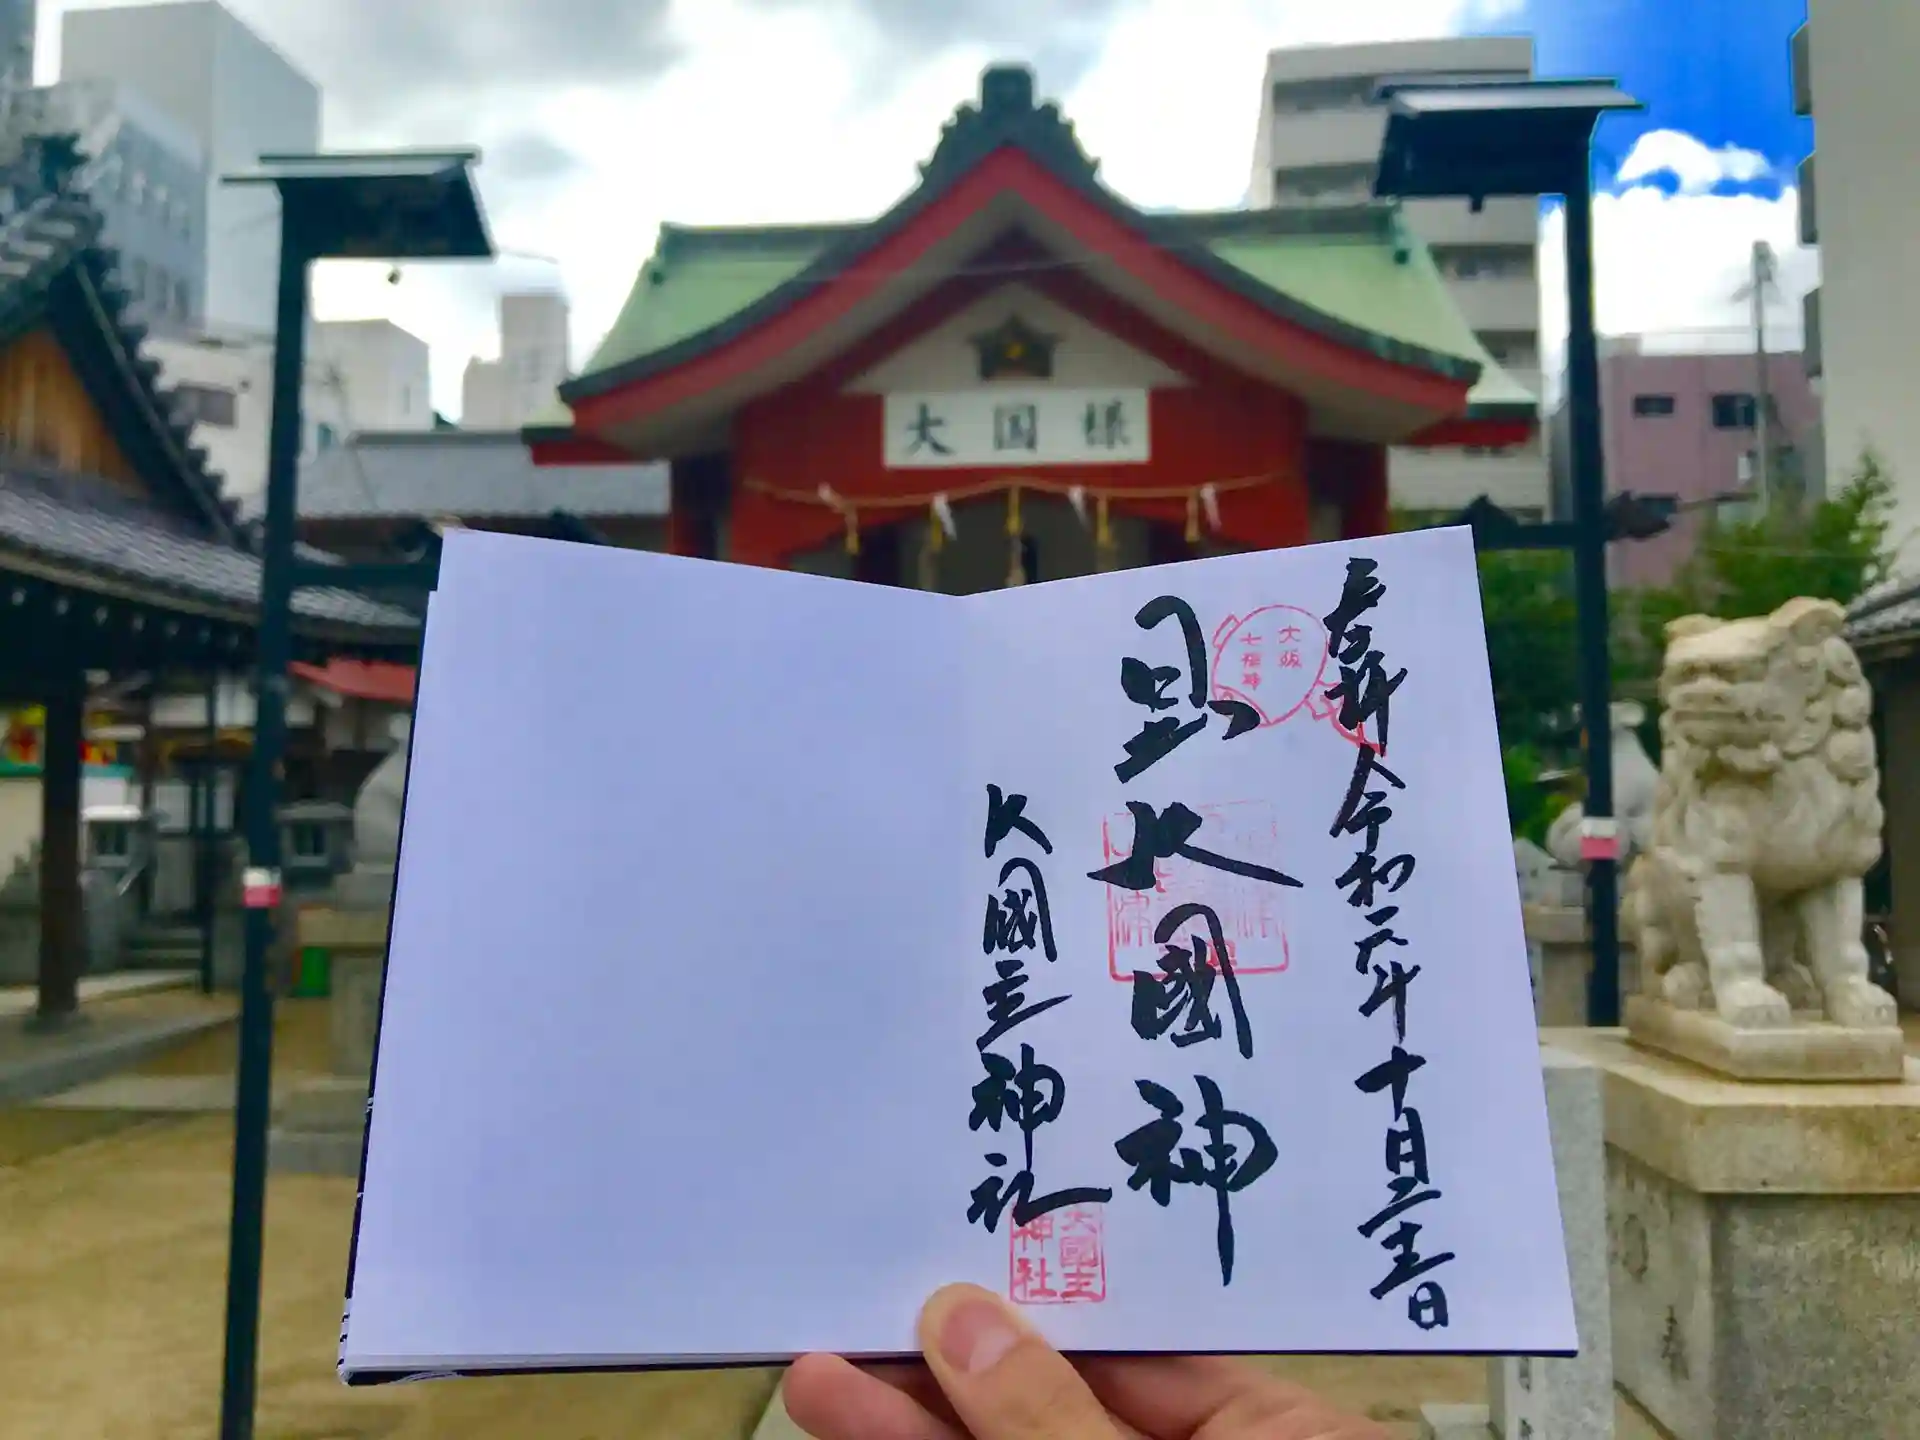 大国様
奉拝 令和元年十月
日出大國神
大國主神社
大阪
七福神
大國主
神社